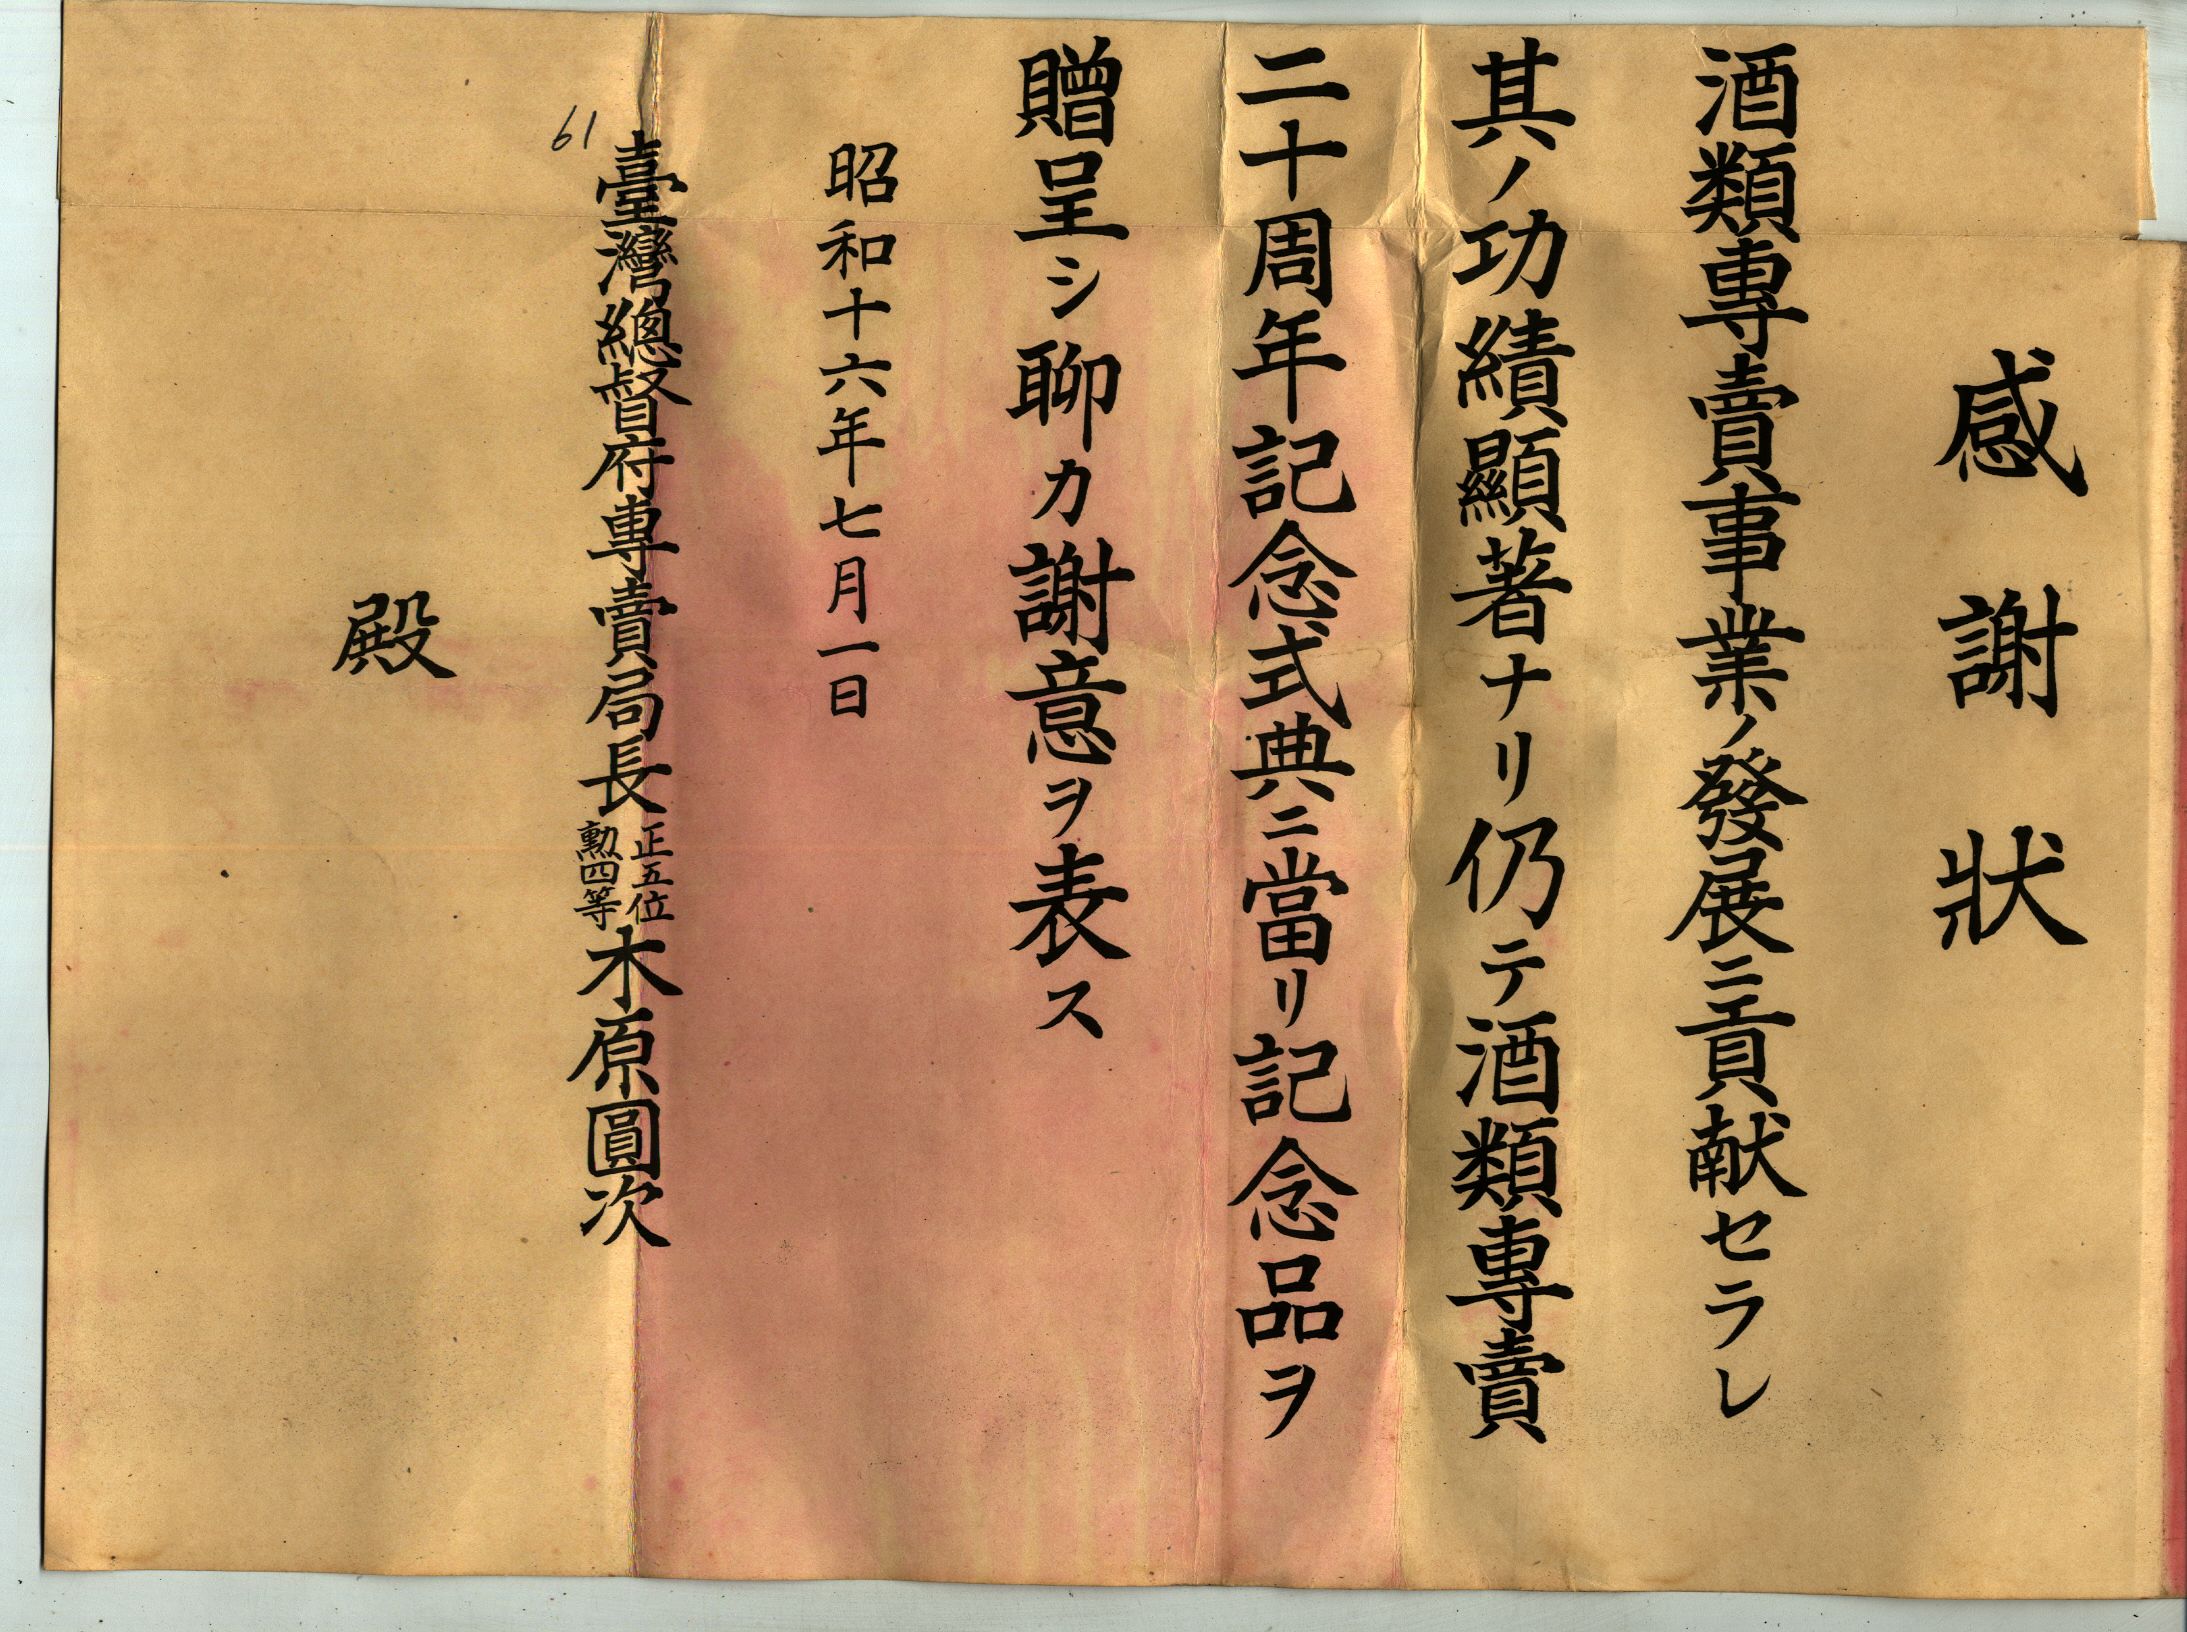 感謝狀
酒類專賣事業ノ發展ニ貢献セラレ
其ノ功績顯著ナリ仍テ酒類專賣
二十周年記念式典ニ當リ記念品ヲ
贈呈シ聊カ謝意ヲ表ス
昭和十六年七月一日
臺灣總督府專賣局長正五位勳四等木原圓次
61
殿